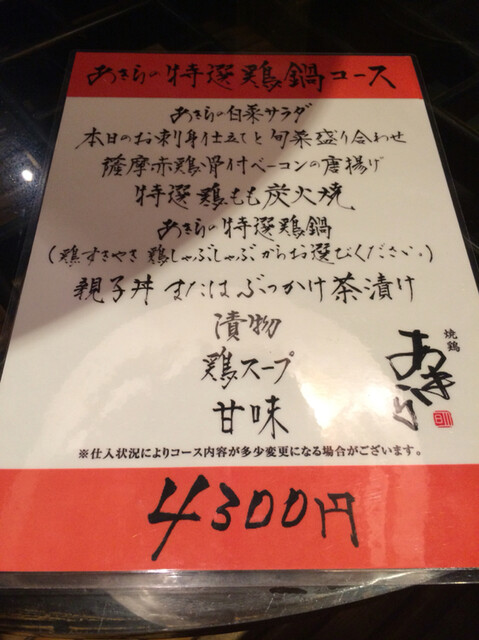 あきらの特選鶏鍋コース
あきらの白菜サラダ
本日のお刺身仕立てと旬菜盛り合わせ
薩摩赤鶏骨付ベーコンの唐揚げ
特選鶏もも炭火焼
あきらの特選鶏鍋
(鶏すきやき 鶏しゃぶしゃぶからお選びください。)
親子丼 またはぶっかけ茶漬け
漬物
鶏スープ
甘味
焼鶏
あきら
※仕入状況によりコース内容が多少変更になる場合がございます。
4300円